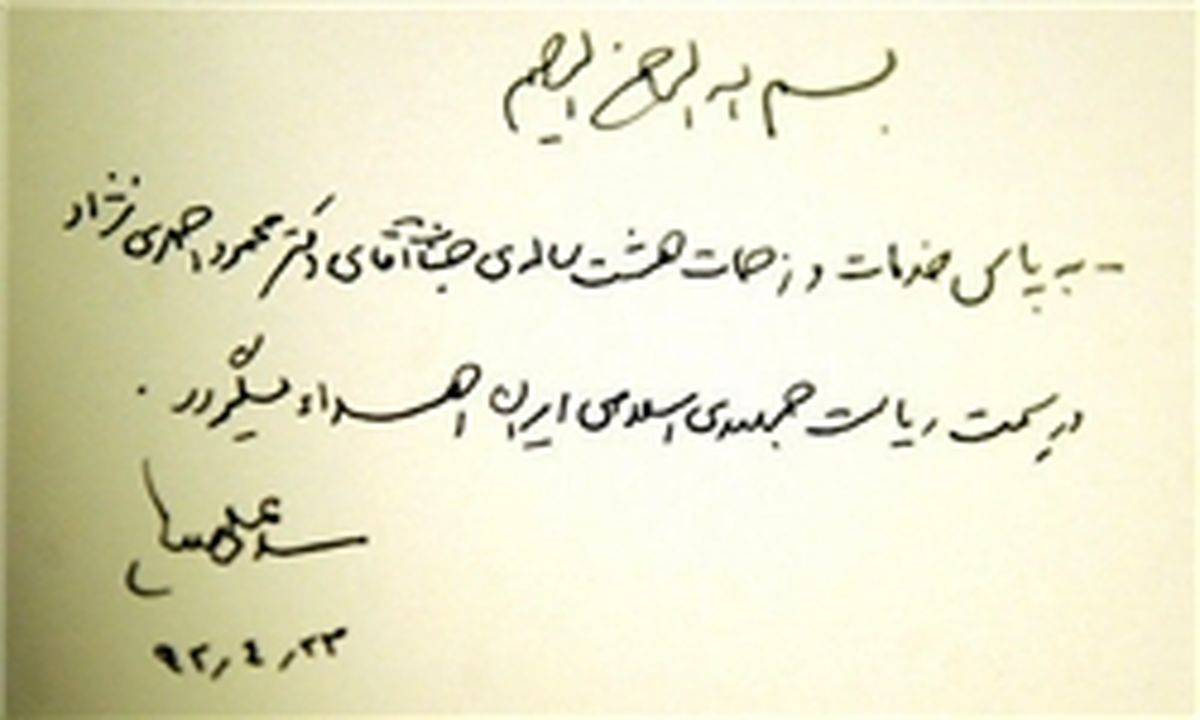 بسم الله الرحمن الرحیم
- به پاس خدمات و زحمات هشت ساله‌ی جناب آقای دکتر محمود احمدی نژاد
در سمت ریاست جمهوری اسلامی ایران اهداء میگردد .
سید علی
۹۲/٤/۲۳